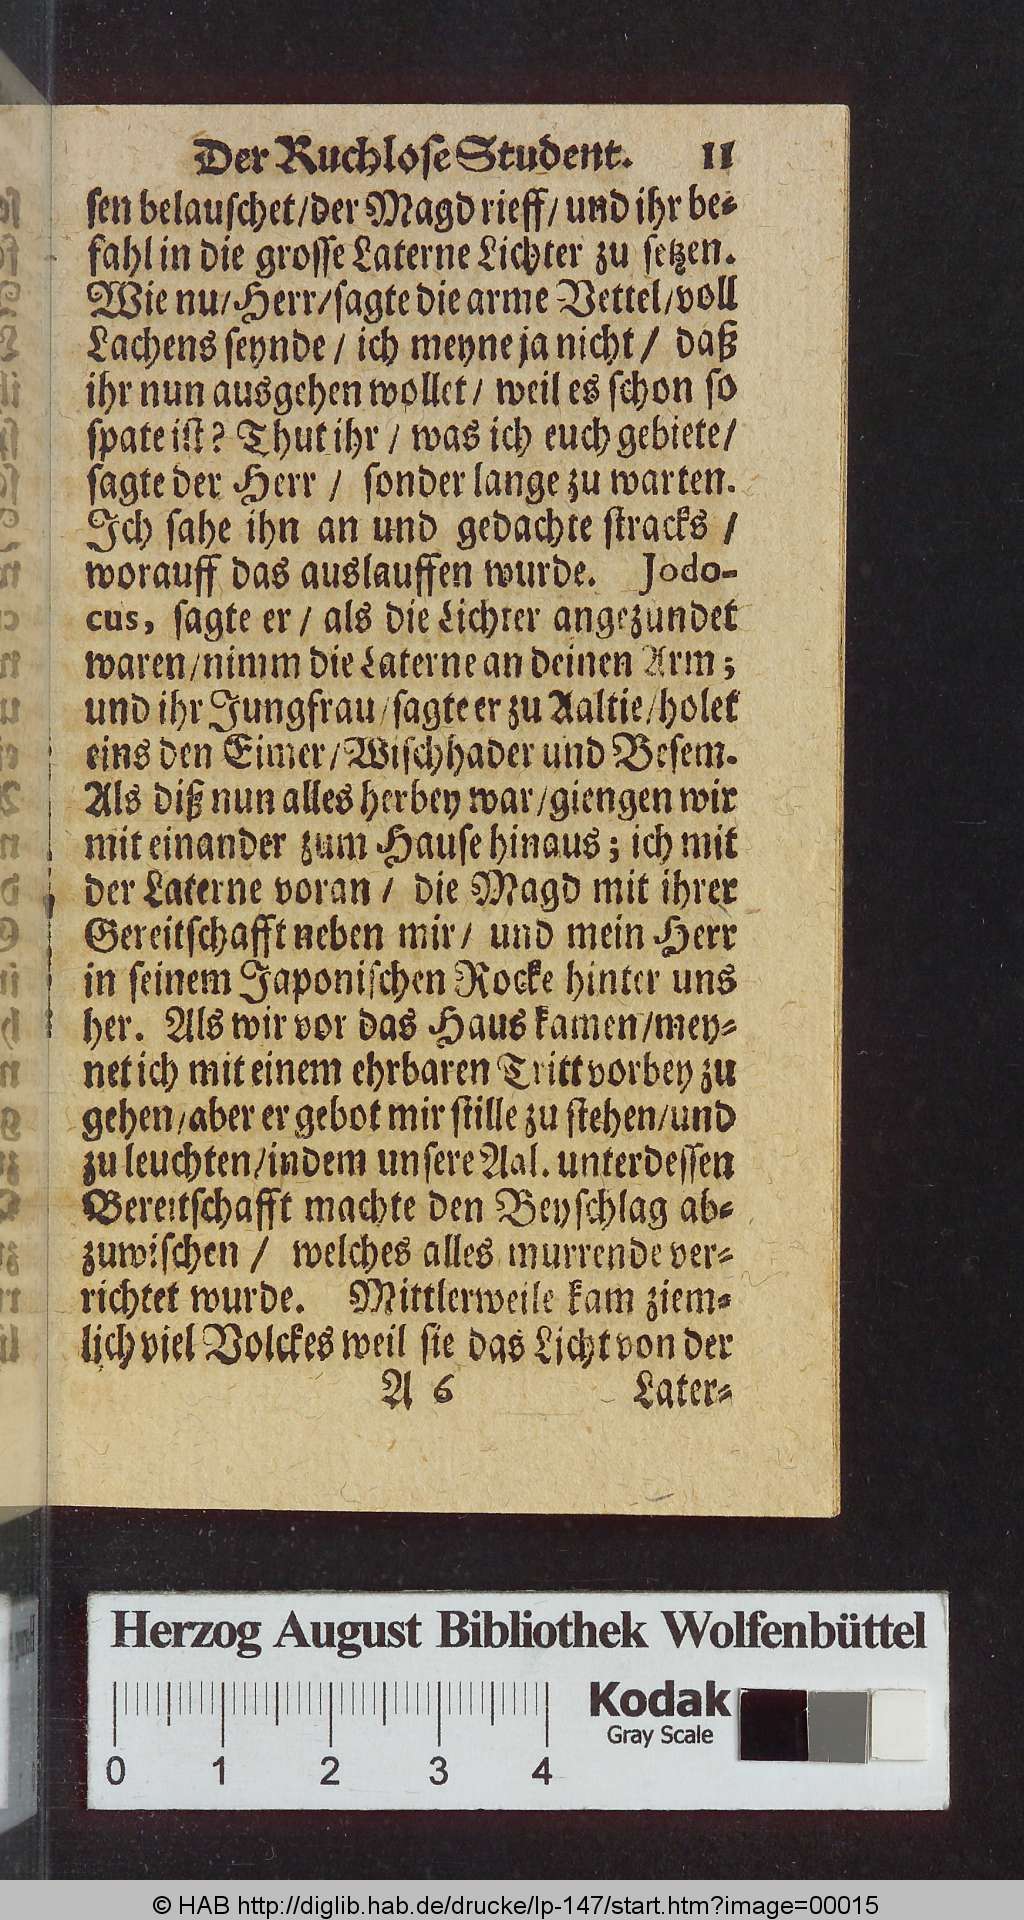 Der Ruchlose Student. 11
sen belauschet/der Magd rieff/ und ihr be-
fahl in die grosse Laterne Lichter zu setzen.
Wie nu/Herr/sagte die arme Vettel/voll
Lachens seynde/ ich meyne ja nicht/ daß
ihr nun ausgehen wollet/ weil es schon so
spate ist? Thut ihr/ was ich euch gebiete/
sagte der Herr/ sonder lange zu warten.
Ich sahe ihn an und gedachte stracks/
worauff das auslauffen wurde. Jodo-
cus, sagte er/ als die Lichter angezundet
waren/nimm die Laterne an deinen Arm;
und ihr Jungfrau/sagte er zu Aaltie/holet
eins den Eimer/Wischhader und Besem.
Als diß nun alles herbey war/giengen wir
mit einander zum Hause hinaus; ich mit
der Laterne voran/ die Magd mit ihrer
Gereitschafft neben mir/ und mein Herr
in seinem Japonischen Rocke hinter uns
her. Als wir vor das Haus kamen/mey-
net ich mit einem ehrbaren Tritt vorbey zu
gehen/aber er gebot mir stille zu stehen/und
zu leuchten/indem unsere Aal. unterdessen
Bereitschafft machte den Beyschlag ab-
zuwischen/ welches alles murrende ver-
richtet wurde. Mittlerweile kam ziem-
lich viel Volckes weil sie das Licht von der
A 6 Later-
Herzog August Bibliothek Wolfenbüttel
Kodak
Gray Scale
0 1 2 3 4
© HAB http://diglib.hab.de/drucke/lp-147/start.htm?image=00015